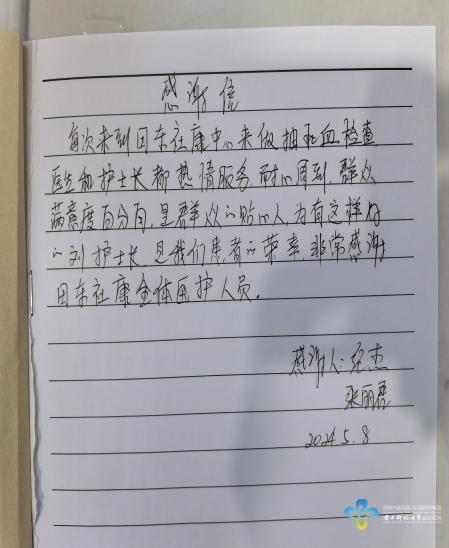 感谢信
每次来到田东社康中心来做抽血检查
医生和护士长都热情服务耐心周到,群众
满意度百分百,是群众的贴心人,为有这样好
的刘护士长,是我们患者的荣幸,非常感谢
田东社康全体医护人员。
感谢人:
张丽君
2024.5.8